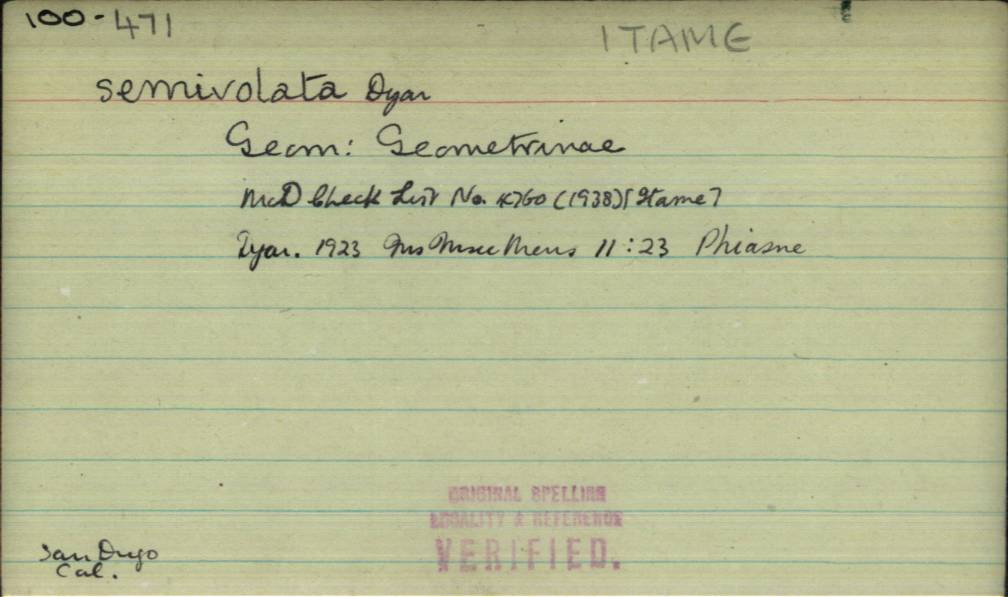 100-471
ITAME
semivolata Dyar
Geom: Geometrinae
McD Check List No. 4760 (1938) [Itame]
Dyar. 1923 Ins Insc Mens 11:23 Phiasne
ORIGINAL SPELLING
LOCALITY & REFERENCE
VERIFIED.
San Diego
Cal.